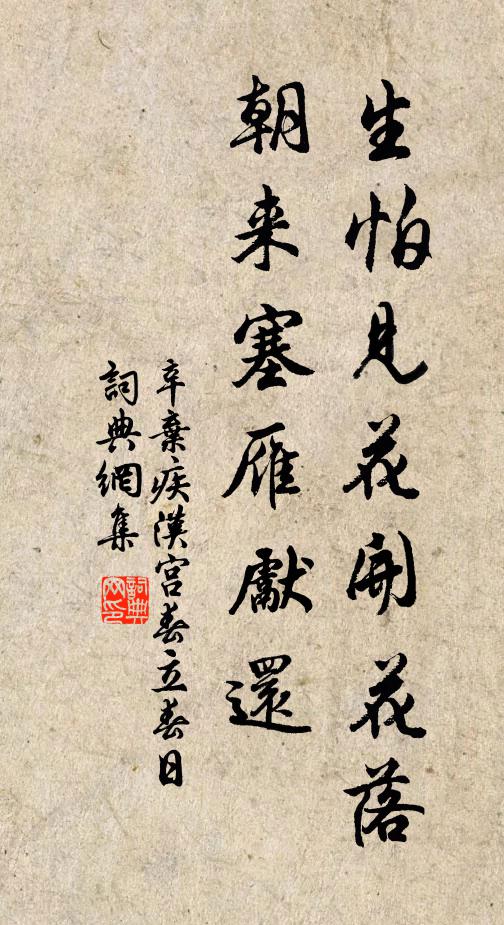 生怕見花開花落
朝来塞雁獻還
辛棄疾漢宮春立春日
詞典網集
詞典
网印